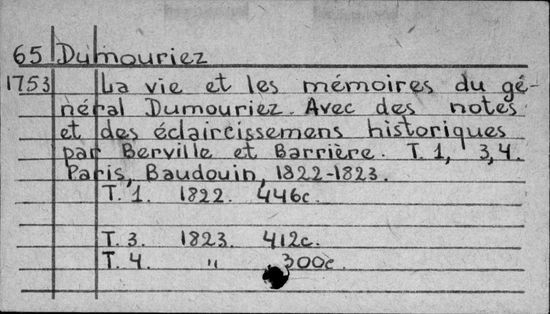 65 Dumouriez
1753 La vie et les mémoires du gé-
néral Dumouriez. Avec des notes
et des éclaircissemens historiques
par Berville et Barrière. T. 1, 3,4.
Paris, Baudouin, 1822-1823.
T. 1. 1822. 446c.
T. 3. 1823. 412c.
T. 4. " 300c.